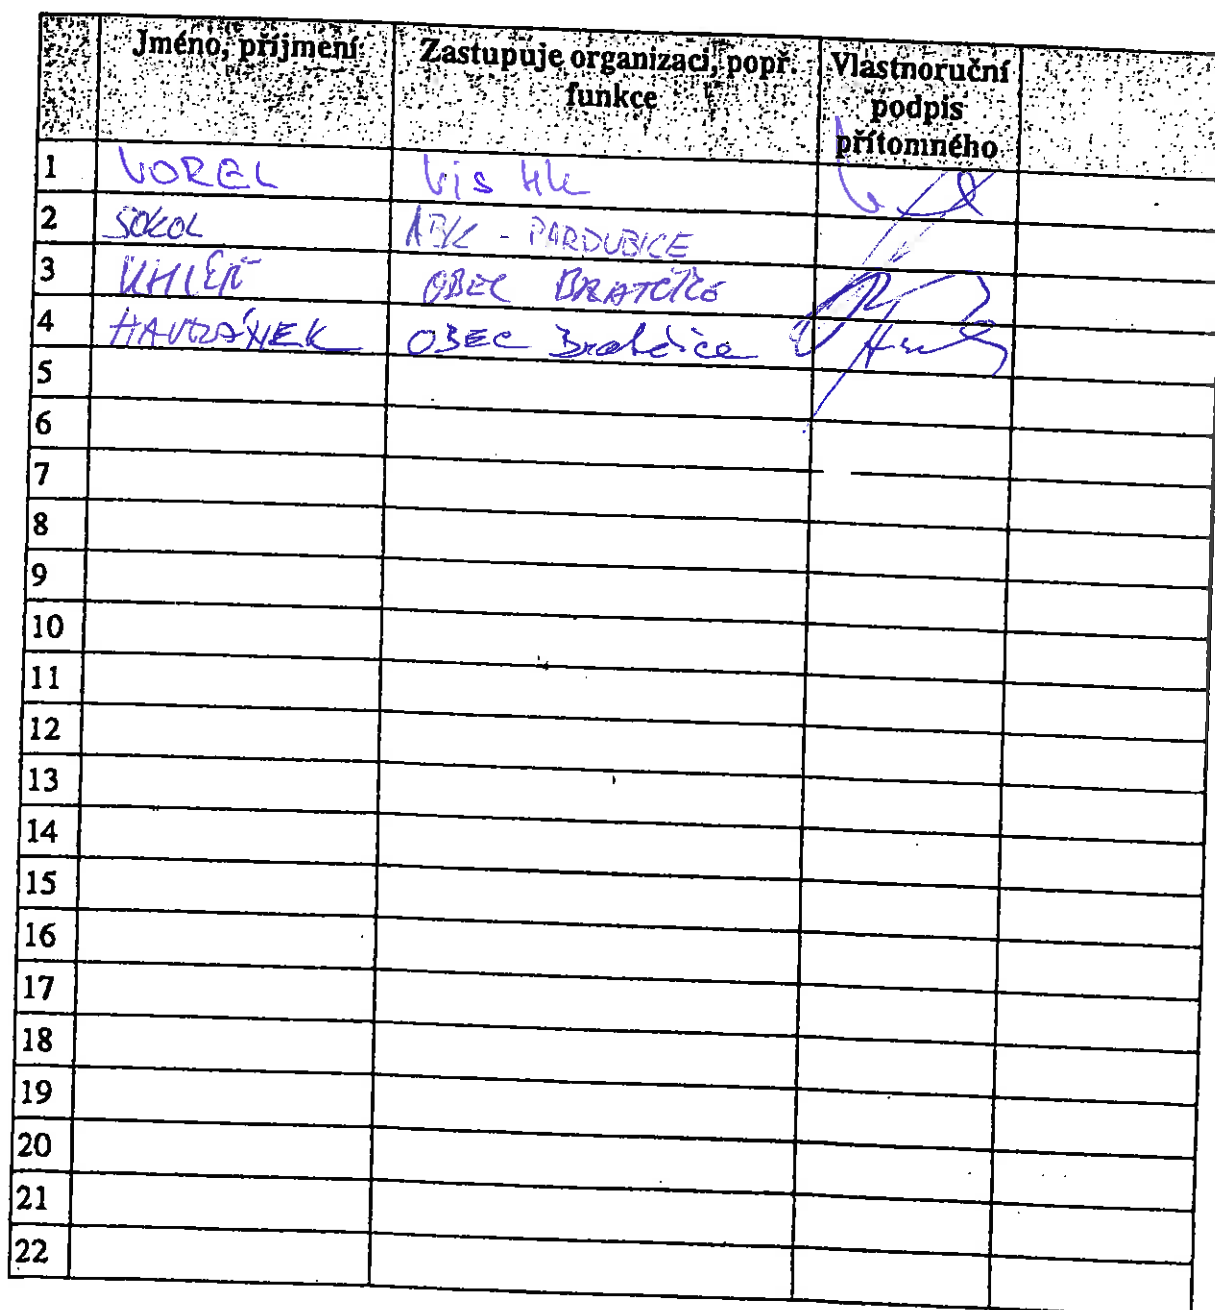 Jméno, příjmení Zastupuje organizaci, popř. funkce Vlastnoruční podpis přítomného
1 VOREL Vis HK
2 SOKOL ABK - PARDUBICE
3 UHLÍŘ OBEC BRATČICE
4 OBEC Bratčice
5
6
7
8
9
10
11
12
13
14
15
16
17
18
19
20
21
22